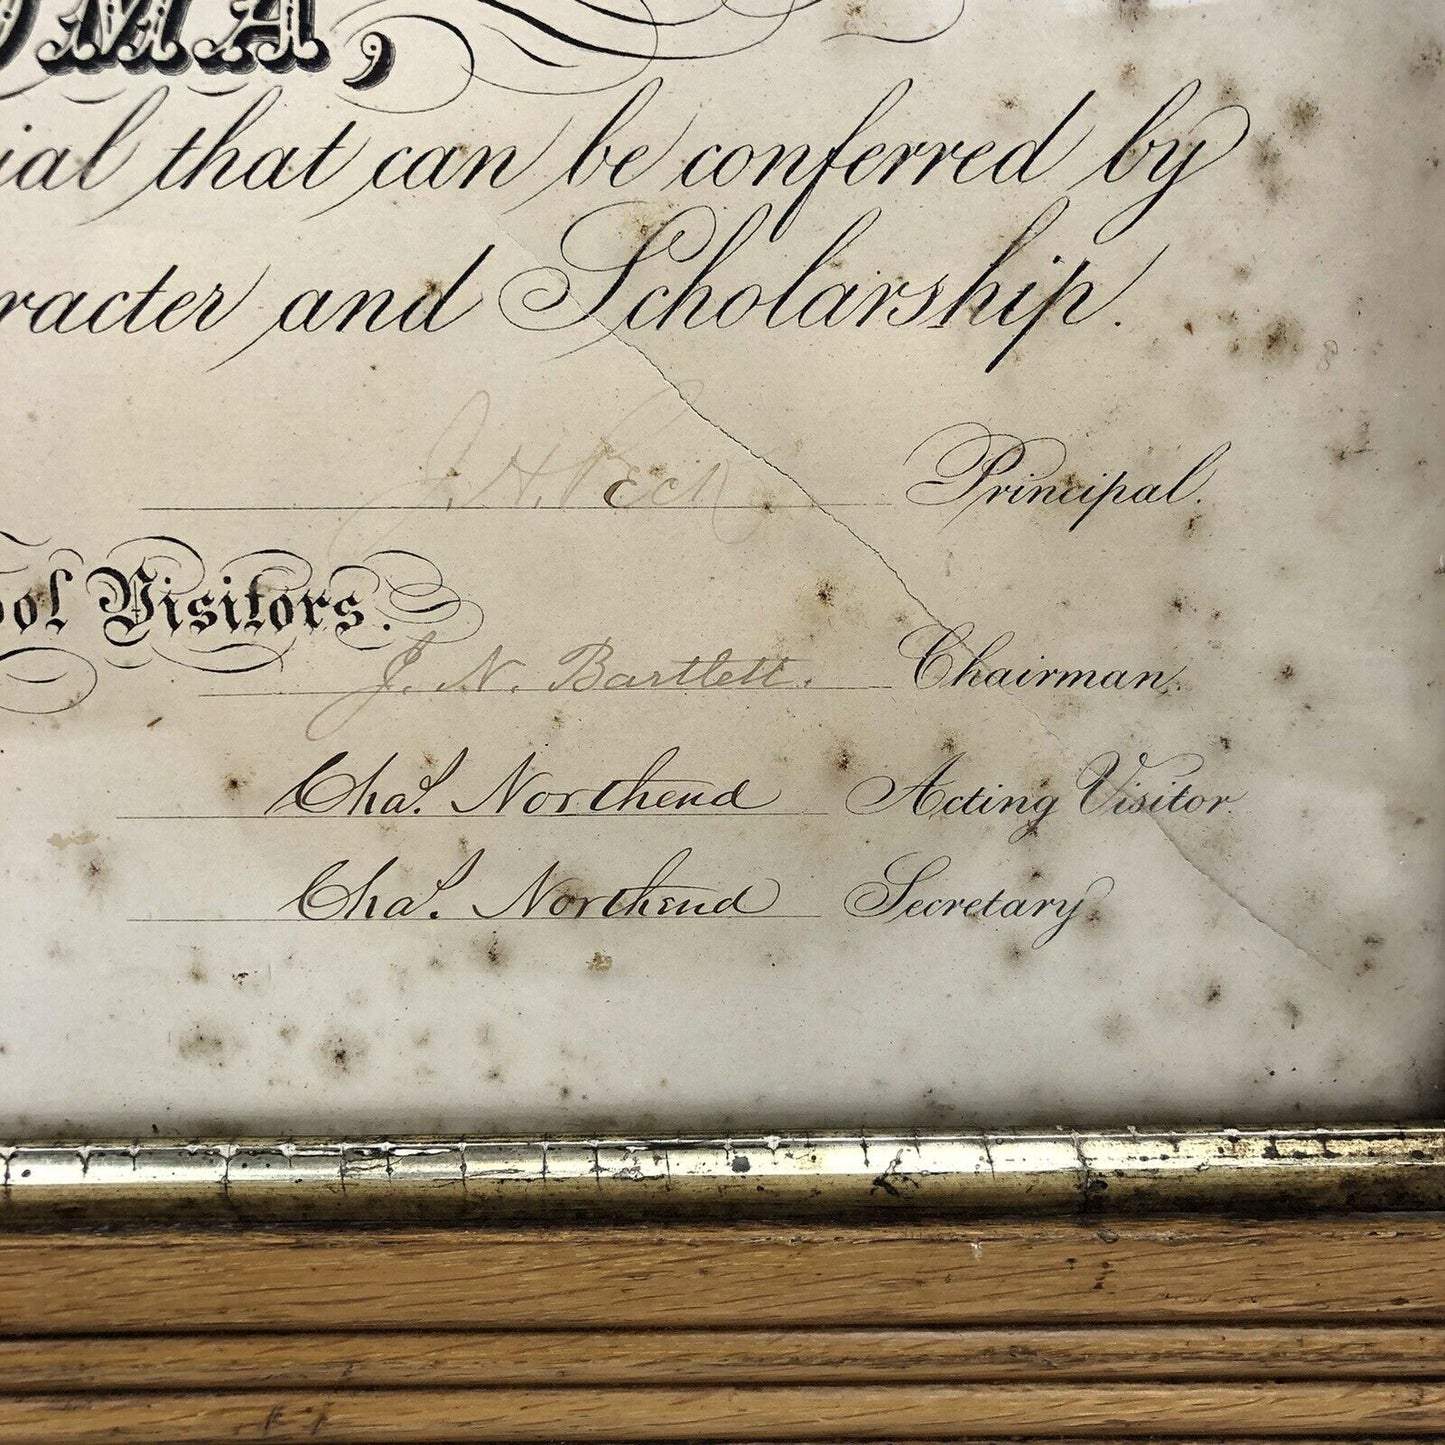 OMA,
ial that can be conferred by
racter and Scholarship.
J. H. Peck Principal.
ol Visitors.
J. N. Bartlett. Chairman.
Chas. Northend Acting Visitor.
Chas. Northend Secretary.